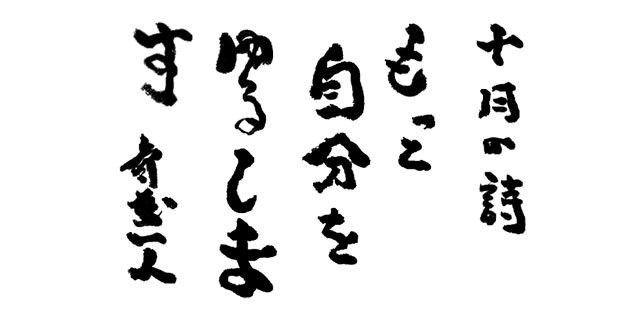 十月の詩
もっと
自分を
ゆるしま
す 斎藤一人